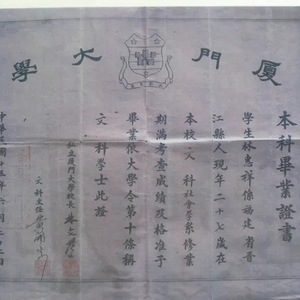 廈門大學
本科畢業證書
學生林惠祥係福建省晉
江縣人現年二十七歲在
本校文科社會學系修業
期滿考查成績及格准予
畢業依大學令第十條稱
文科學士此證
私立廈門大學校長林文慶
文科主任
中華民國十五年六月